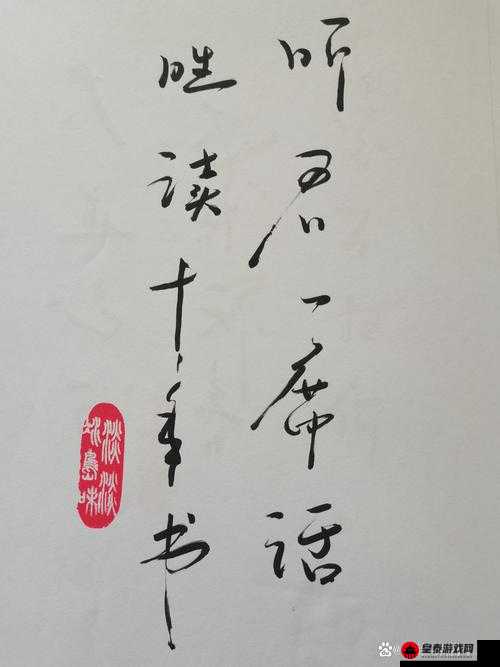 听君一席话
胜读十年书
淡淡
皇泰游戏网